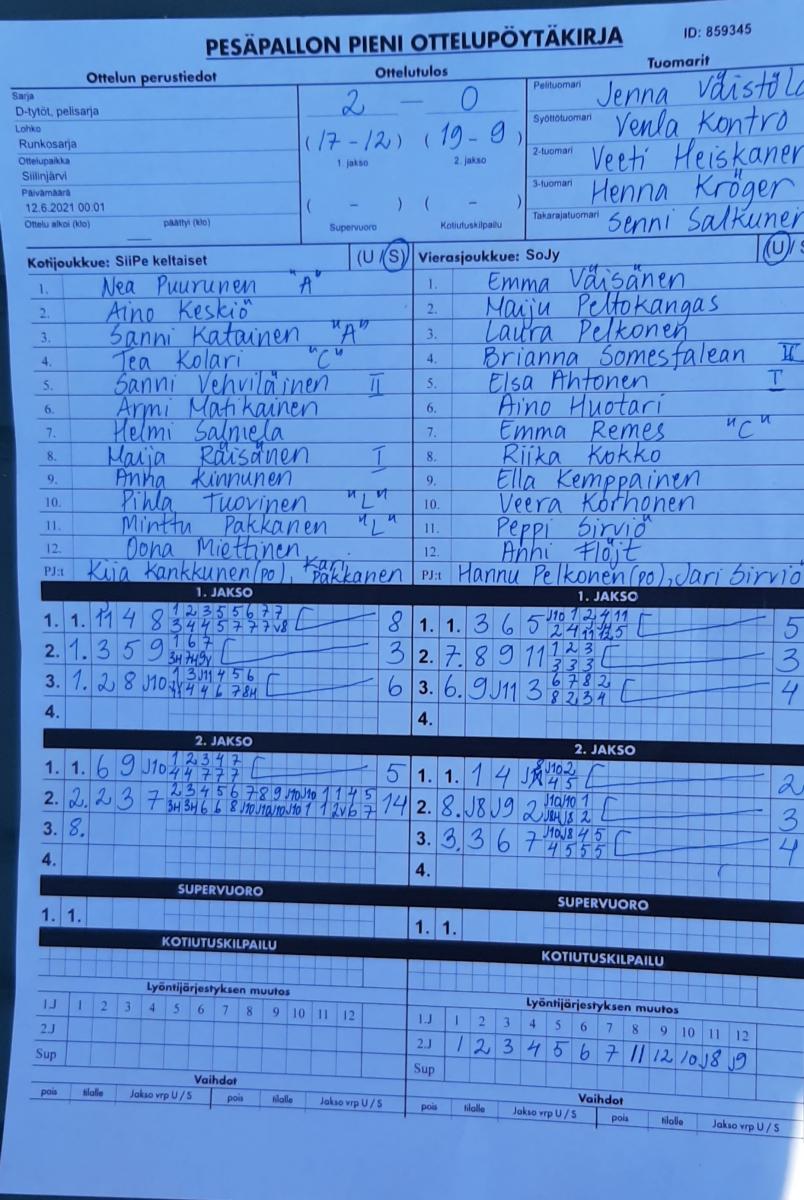 PESÄPALLON PIENI OTTELUPÖYTÄKIRJA ID: 859345
Ottelun perustiedot Ottelutulos Tuomarit
Sarja
D-tytöt, pelisarja
Lohko
Runkosarja
Ottelupaikka
Siilinjärvi
Päivämäärä
12.6.2021 00:01
Ottelu alkoi (klo) päättyi (klo)
2 — 0
(17-12) (19-9)
1. jakso 2. jakso
( - ) ( - )
Supervuoro Kotiutuskilpailu
Pelituomari Jenna
Syöttötuomari Venla Kontro
2-tuomari Veeti Heiskanen
3-tuomari Henna Kröger
Takarajatuomari Senni
Kotijoukkue: SiiPe keltaiset (U / S)
1. Nea Puurunen "A"
2. Aino Keskiö
3. Sanni Katainen "A"
4. Tea Kolari "C"
5. Sanni Vehviläinen II
6. Armi Matikainen
7. Helmi Salmela
8. Maija Räisänen I
9. Anna Kinnunen
10. Pihla Tuovinen "L"
11. Minttu Pakkanen "L"
12. Oona Miettinen
PJ:t Kija Kankkunen (po), Kari Pakkanen
Vierasjoukkue: SoJy (U / S
1. Emma Väisänen
2. Maiju Peltokangas
3. Laura Pelkonen
4. Brianna Somesfalean II
5. Elsa Ahtonen I
6. Aino Huotari
7. Emma Remes "C"
8. Riika Kokko
9. Ella Kemppainen
10. Veera Korhonen
11. Peppi Sirviö
12. Anni Flöjt
PJ:t Hannu Pelkonen (po), Jari Sirviö
1. JAKSO
1. 1. 11 4 8 8
2. 1. 3 5 9 3
3. 1. 2 8 J10 6
4.
2. JAKSO
1. 1. 6 9 J10 5
2. 2. 2 3 7 14
3. 8.
4.
SUPERVUORO
1. 1.
KOTIUTUSKILPAILU
Lyöntijärjestyksen muutos
1.J 1 2 3 4 5 6 7 8 9 10 11 12
2.J
Sup
Vaihdot
pois tilalle Jakso vrp U / S pois tilalle Jakso vrp U / S
1. JAKSO
1. 1. 3 6 5 5
2. 7. 8 9 11 1 2 3 3
3 3 3
3. 6. 9 J11 3 6 7 8 2 4
8 2 3 4
4.
2. JAKSO
1. 1. 1 4 2
2. 8. J8 J9 2 3
3. 3. 3 6 7 J10 J8 4 5 4
4 5 5 5
4.
SUPERVUORO
1. 1.
KOTIUTUSKILPAILU
Lyöntijärjestyksen muutos
1.J 1 2 3 4 5 6 7 8 9 10 11 12
2.J 1 2 3 4 5 6 7 11 12 10 J8 J9
Sup
Vaihdot
pois tilalle Jakso vrp U / S pois tilalle Jakso vrp U / S